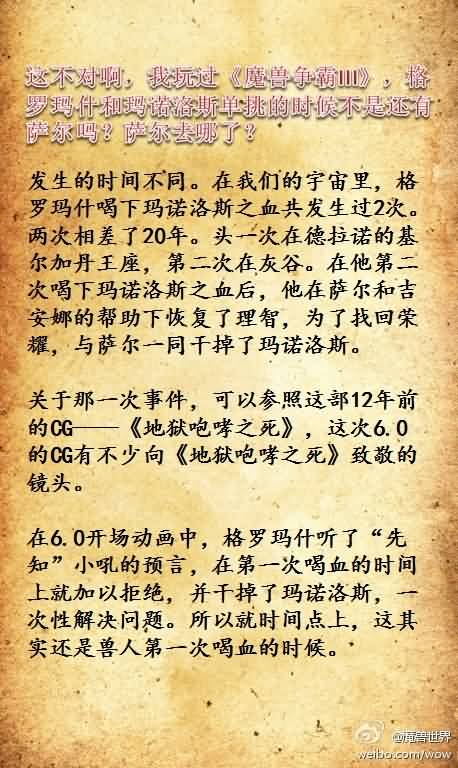 这不对啊，我玩过《魔兽争霸III》，格
罗玛什和玛诺洛斯单挑的时候不是还有
萨尔吗？萨尔去哪了？
发生的时间不同。在我们的宇宙里，格
罗玛什喝下玛诺洛斯之血共发生过2次。
两次相差了20年。头一次在德拉诺的基
尔加丹王座，第二次在灰谷。在他第二
次喝下玛诺洛斯之血后，他在萨尔和吉
安娜的帮助下恢复了理智，为了找回荣
耀，与萨尔一同干掉了玛诺洛斯。
关于那一次事件，可以参照这部12年前
的CG——《地狱咆哮之死》，这次6.0
的CG有不少向《地狱咆哮之死》致敬的
镜头。
在6.0开场动画中，格罗玛什听了“先
知”小吼的预言，在第一次喝血的时间
上就加以拒绝，并干掉了玛诺洛斯，一
次性解决问题。所以就时间点上，这其
实还是兽人第一次喝血的时候。
@魔兽世界
weibo.com/wow